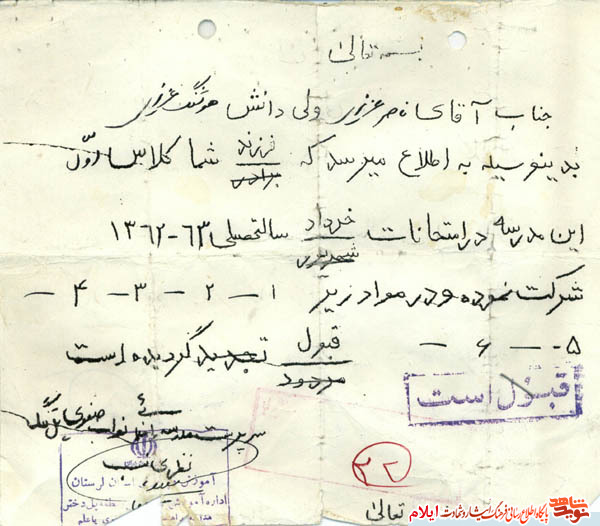 بسمه تعالی
جناب آقای ناصر عزیزی ولی دانش هوشنگ عزیزی
بدینوسیله به اطلاع میرسد که فرزند شما کلاس اول
برادر
این مدرسه در امتحانات خرداد سالتحصلی ۶۳-۱۳۶۲
شهریور
شرکت نموده و در مواد زیر ۱ - ۲ - ۳ - ۴ -
۵ - ۶ - قبول تجدید گردیده است
مردود
قبول است
سرپرست مدرسه
نظری
آموزش لرستان
اداره آموزش دختر
۳۲
تعالی
نوید شاهد پایگاه اطلاع رسانی فرهنگ ایثار و شهادت ایلام